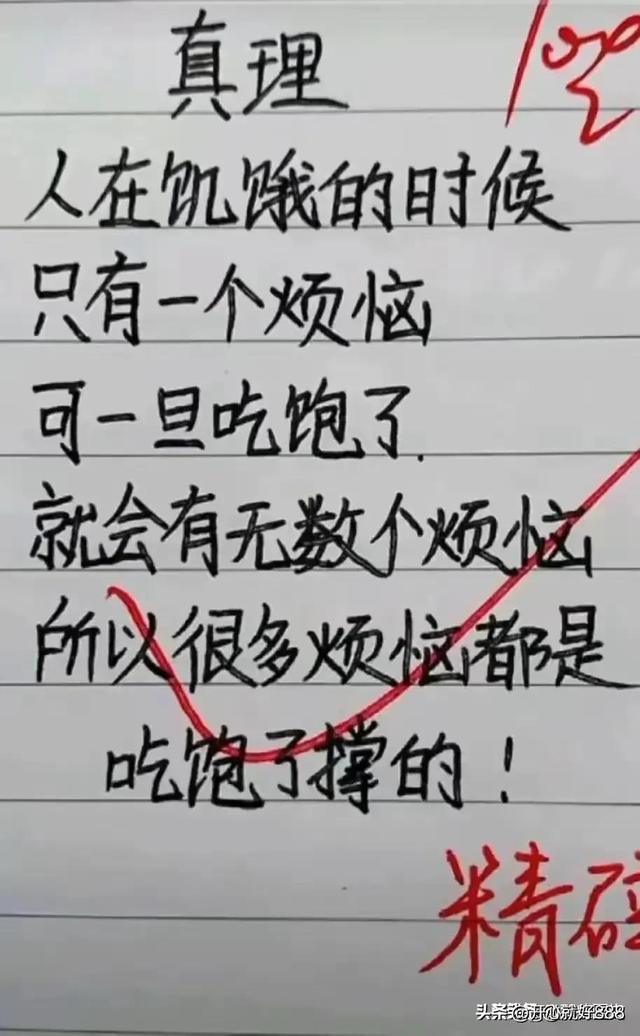 真理
100
人在饥饿的时候
只有一个烦恼
可一旦吃饱了.
就会有无数个烦恼
所以很多烦恼都是
吃饱了撑的!
精
头条 @开心就好888